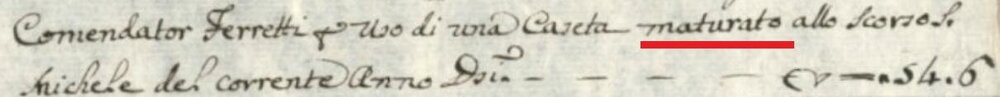 Comendator Ferretti p Uso di una Caseta maturato allo scorso S.
Michele del corrente Anno Dni. - - - - - 54.6